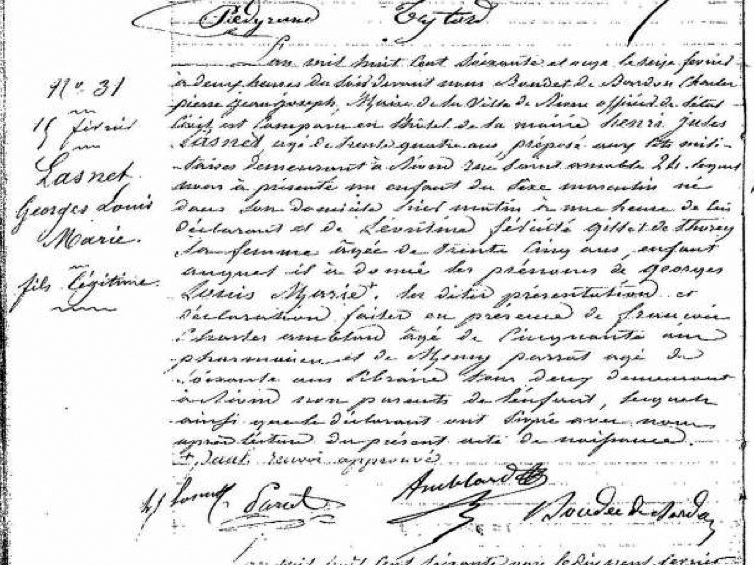 Peyrund Teytard
L'an mil huit cent soixante et onze le seize février
à deux heures du soir devant nous Boudet de Bardon Charles
pierre Jean Joseph, Maire de la Ville de Riom officier de l'état
Civil est Comparu en l'hôtel de la mairie henri jules
Lasnet agé de trente quatre ans, préposé aux lits mili-
taires demeurant à Riom rue Saint amable 24. lequel
nous a présenté un enfant du sexe masculin né
dans son domicile hier matin à une heure de lui
déclarant et de Léontine félicité gillet de Thorey
Sa femme âgée de trente Cinq ans, enfant
auquel il a donné les prénoms de Georges
Louis Marie+. les dites présentation et
déclaration faites en présence de françois
Charles amblard agé de Cinquante ans
pharmacien et de Parrot agé de
Soixante ans libraire tous deux demeurant
à Riom non parents de l'enfant, lesquels
ainsi que le déclarant ont signé avec nous
après lecture du présent acte de naissance.
+ renvoi approuvé
N° 31
15 février
Lasnet
Georges Louis
Marie.
fils légitime
hj Lasnet Parrot Amblard Boudet de Bardon
L'an mil huit cent soixante onze le dix sept février